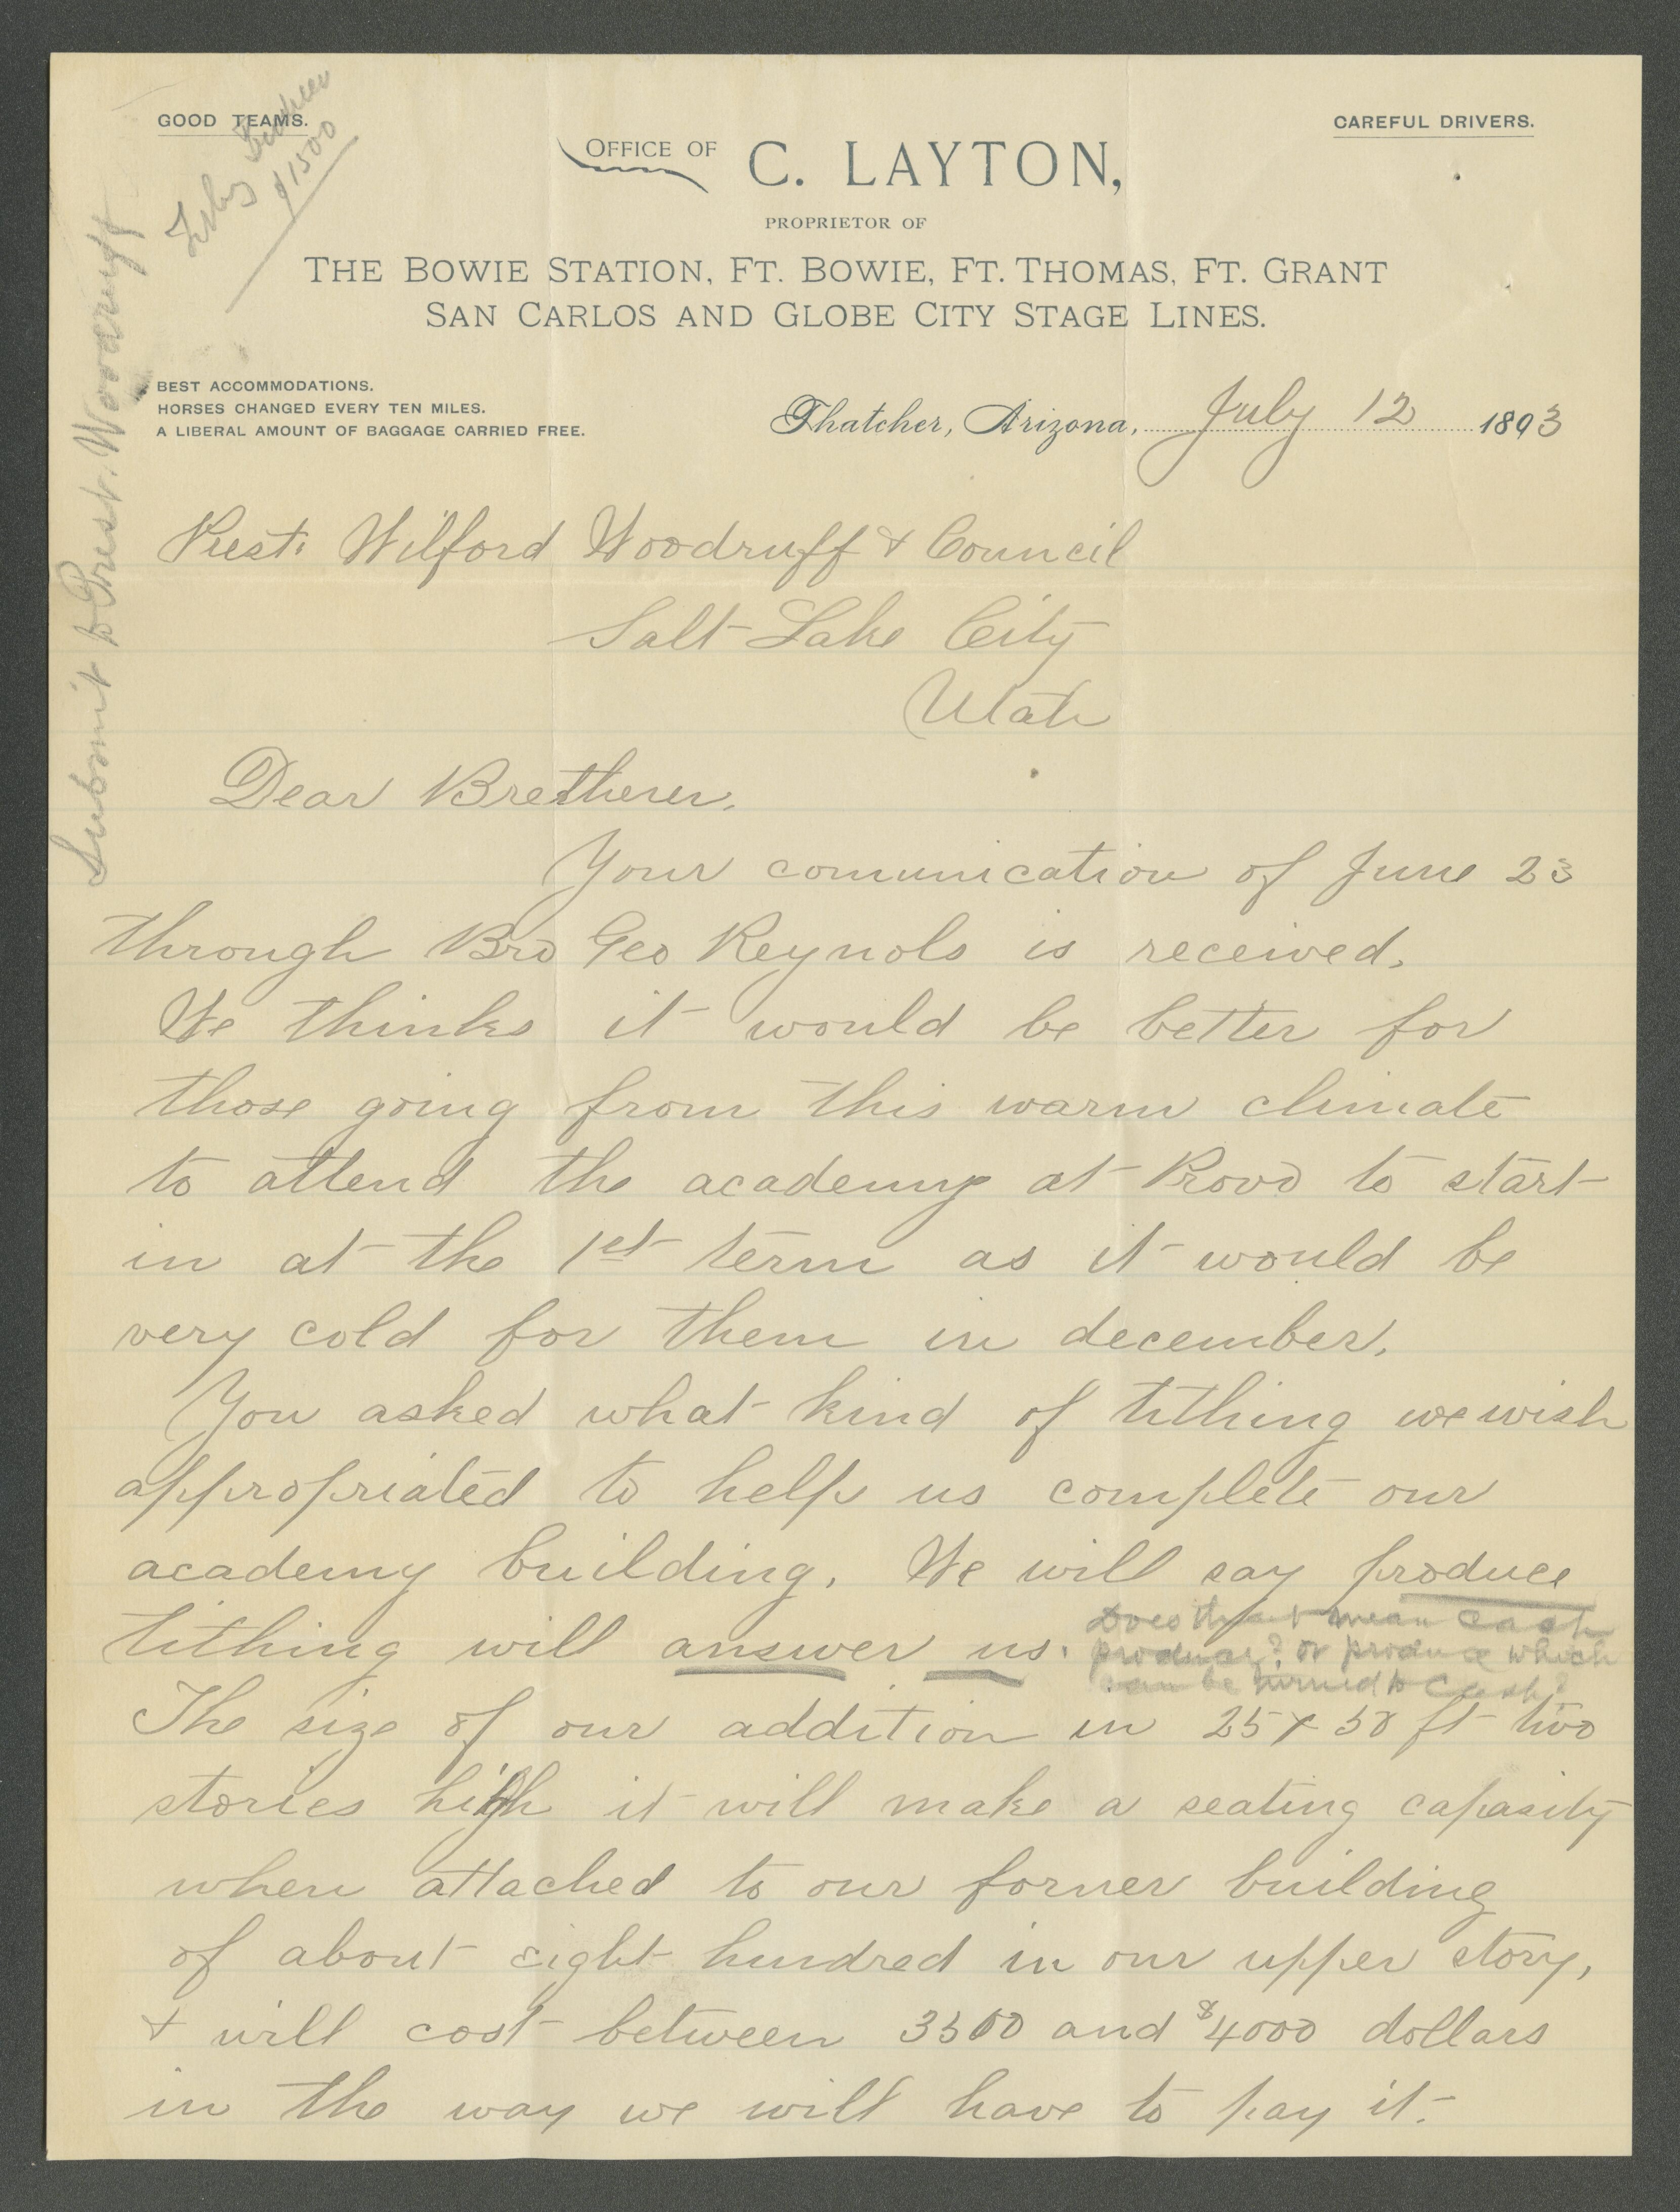 GOOD TEAMS.
$1500
CAREFUL DRIVERS.
OFFICE OF C. LAYTON,
PROPRIETOR OF
THE BOWIE STATION, FT. BOWIE, FT. THOMAS, FT. GRANT
SAN CARLOS AND GLOBE CITY STAGE LINES.
BEST ACCOMMODATIONS.
HORSES CHANGED EVERY TEN MILES.
A LIBERAL AMOUNT OF BAGGAGE CARRIED FREE.
Thatcher, Arizona, July 12 1893
Submit to Prest. Woodruff
Prest: Wilford Woodruff & Council
Salt Lake City
Utah
Dear Bretheren.
Your comunication of June 23
through Bro Geo Reynols is received.
We thinks it would be better for
those going from this warm climate
to attend the academy at Provo to start
in at the 1st term as it would be
very cold for them in december.
You asked what kind of tithing we wish
appropriated to help us complete our
academy building. We will say produce
tithing will answer us.
Does that mean cash
produce? or produce which
can be turned to cash?
The size of our addition in 25 x 50 ft two
stories high it will make a seating capasity
when attached to our former building
of about eight hundred in our upper story,
& will cost between 3500 and $4000 dollars
in the way we will have to pay it.